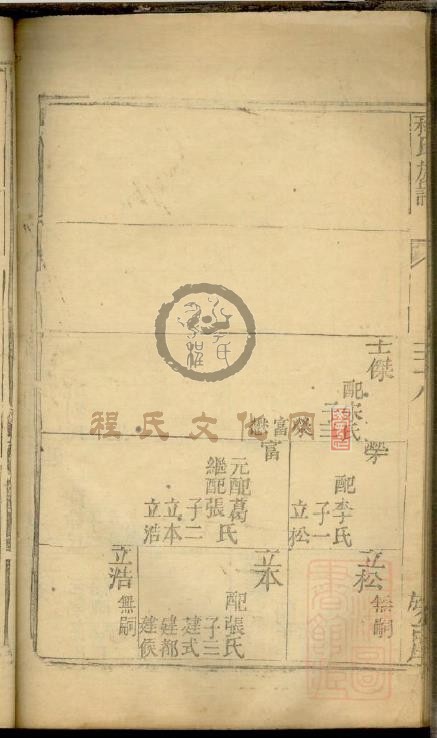 程氏族譜
士傑
配宋氏
子三
榮
富
榮
配李氏
子一
立松
富
元配葛氏
繼配張氏
子二
立本
立浩
立松
無嗣
立本
配張氏
子三
建式
建都
建侯
立浩
無嗣
程氏文化网